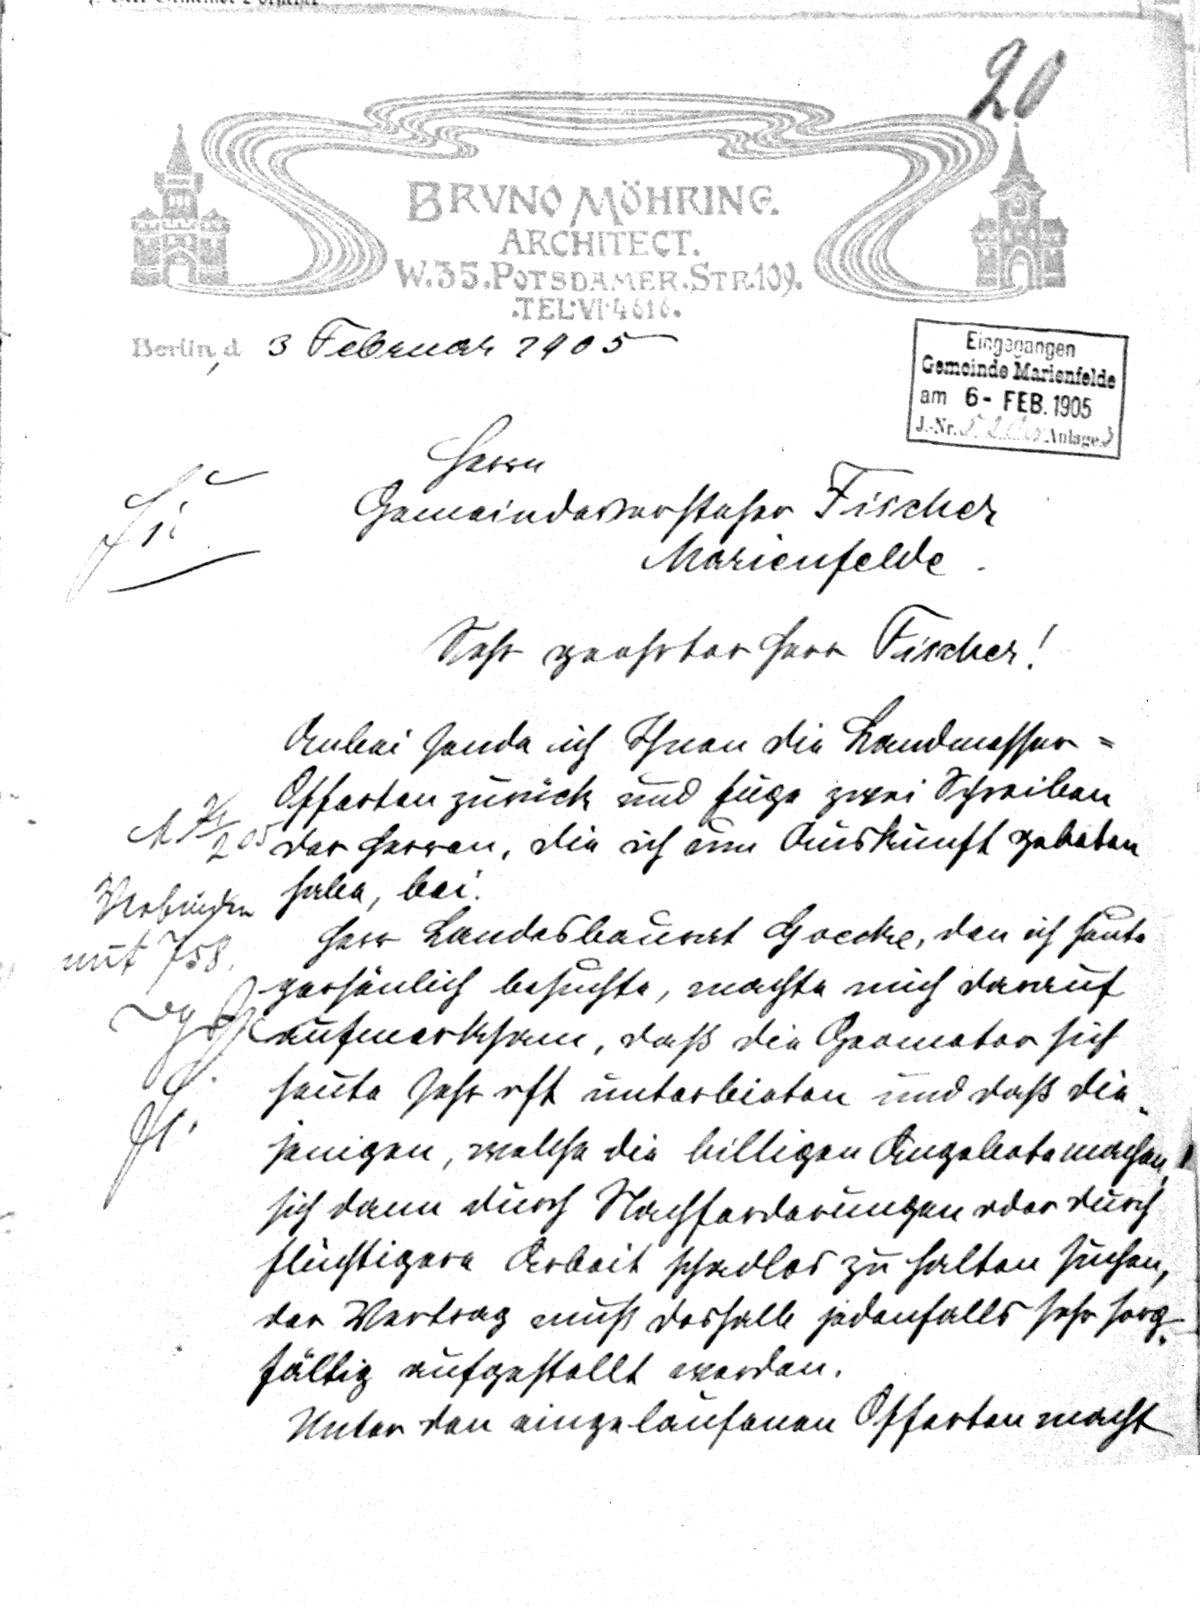 20
BRVNO MÖHRING.
ARCHITECT.
W.35.POTSDAMER.STR.109.
.TEL:VI·4616.
Berlin, d 3 Februar 1905
Eingegangen
Gemeinde Marienfelde
am 6- FEB. 1905
J.-Nr. Anlage
Herrn
Gemeindevorsteher Fischer
Marienfelde.
Sehr geehrter Herr Fischer!
Anbei sende ich Ihnen die Landmesser=
Offerten zurück und füge zwei Schreiben
der Herren, die ich um Auskunft gebeten
habe, bei.
Verbinden
mit 758.
Herr Landesbaurat Goecke, den ich heute
persönlich besuchte, machte mich darauf
aufmerksam, daß die Geometer sich
heute sehr oft unterbieten und daß die-
jenigen, welche die billigen Angebote machen,
sich dann durch Nachforderungen oder durch
flüchtigere Arbeit schadlos zu halten suchen,
der Vertrag muß deshalb jedenfalls sehr sorg-
fältig aufgestellt werden.
Unter den eingelaufenen Offerten macht